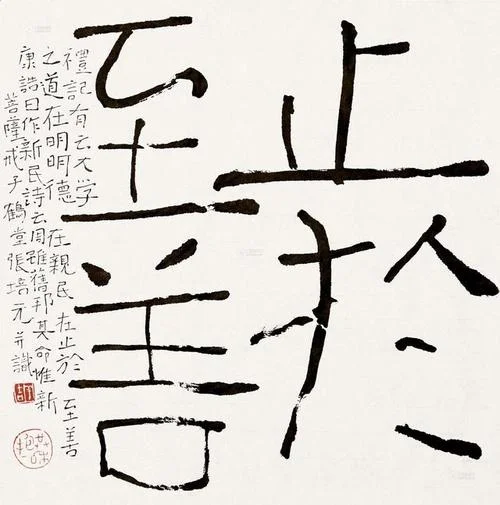 止於
至善
禮記有云大学
之道在明明德在親民在止於至善
康誥曰作新民詩云周雖舊邦其命惟新
菩薩戒子鶴堂張培元并識